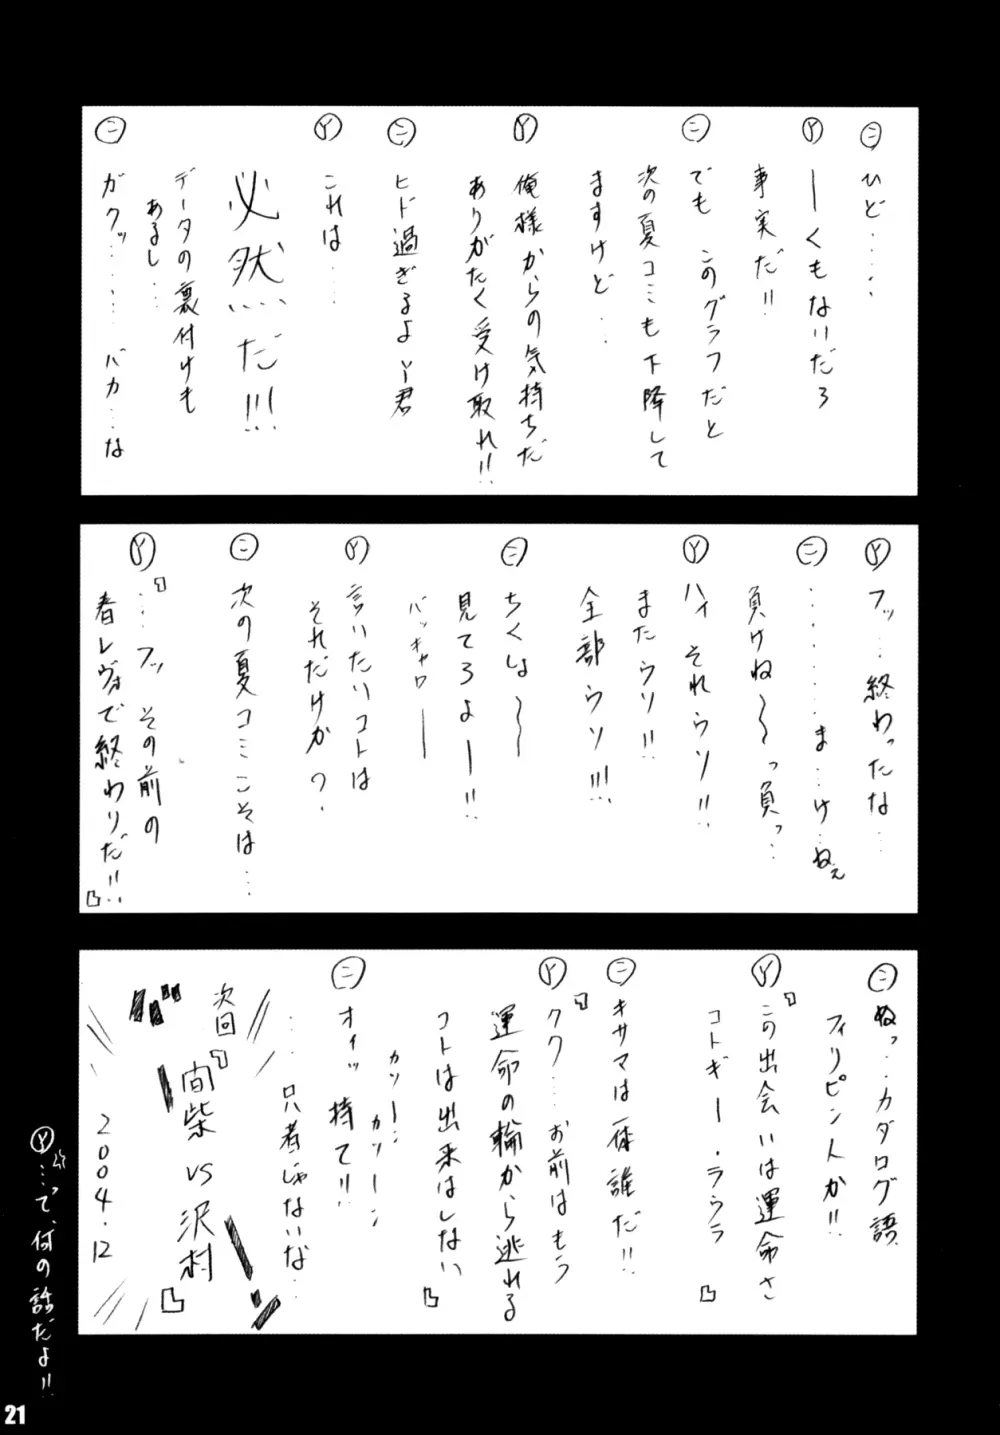 ㊁ひど・・・・・
Ⓨ ーくもないだろ
事実だ!!
㊁でも このグラフだと
次の夏コミも下降して
ますけど・・・
Ⓨ俺様からの気持ちだ
ありがたく受け取れ!!
㊁ヒド過ぎるよY君
Ⓨこれは・・・・
必然だ!!!
データの裏付けも
あるし・・・
㊁ガクッ・・・・・・バカ・・・な
Ⓨフッ・・・終わったな・・・
㊁・・・・・・・ま・・・け・・ねぇ
負けね〜〜っ負っ・・・
Ⓨハイ それウソ!!
またウソ!!
全部ウソ!!!
㊁ちくしょ〜〜
見てろよー!!
バッキャロー
Ⓨ言いたいコトは
それだけか?・
㊁次の夏コミこそは・・・
Ⓨ「・・・フッ その前の
春レヴォで終わりだ!!」
㊁ぬっ・・・カダログ語
フィリピン人か!!
Ⓨ「この出会いは運命さ
コトギー・ラウラ」
㊁キサマは一体誰だ!!
Ⓨ「ククク・・・お前はもう
運命の輪から逃れる
コトは出来はしない」
カツーン カツーン
㊁オイッ 待て!!
・・・只者じゃないな・・・
次回「間柴 vs 沢村」
2004.12
Ⓨ・・・って、何の話だよ!!
21